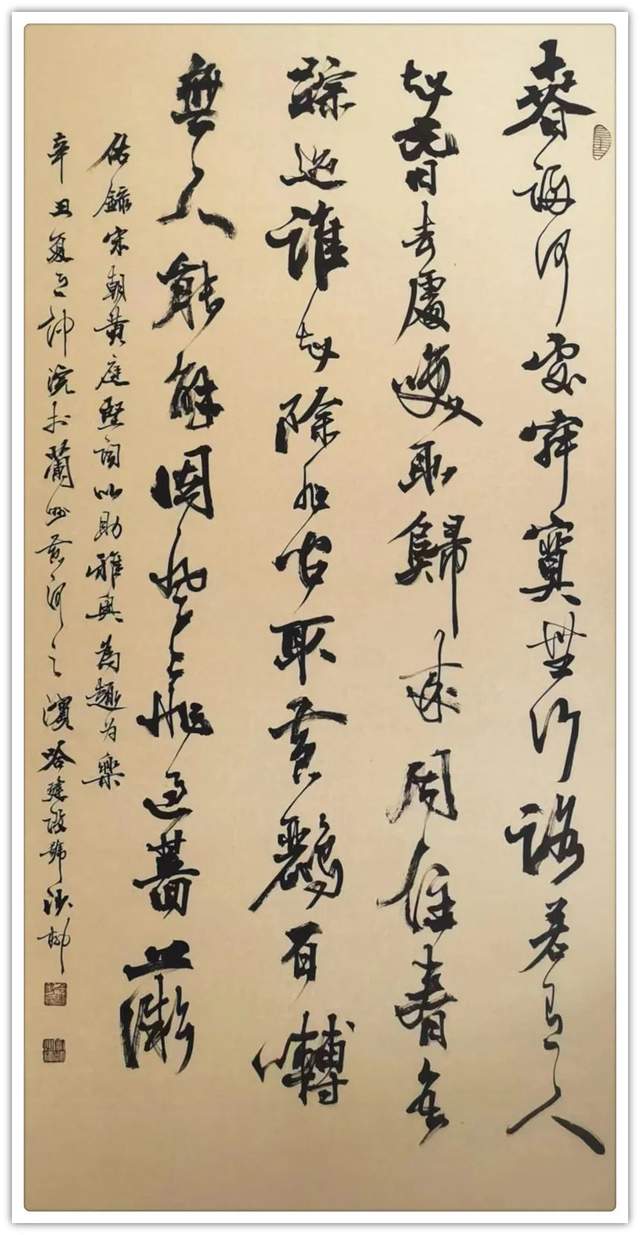 春歸何處寂寞無行路若有人
知春去處喚取歸來同住春無
蹤迹誰知除非問取黃鸝百囀
無人能解因風飛過薔薇
錄宋朝黄庭堅詞以助雅興為趣为樂
辛丑夏於蘭州黄河之濱建設號